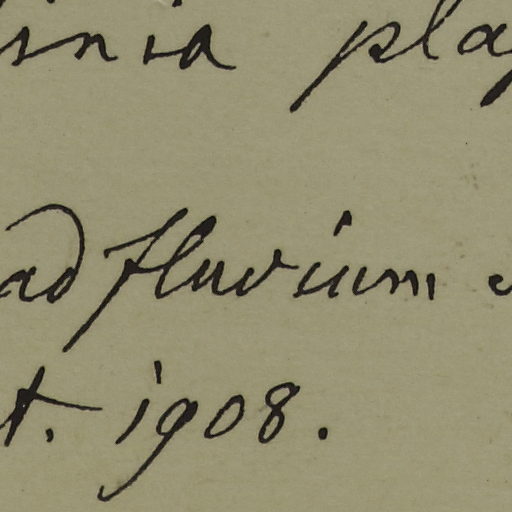 inia pla
ad fluvium
t. 1908.